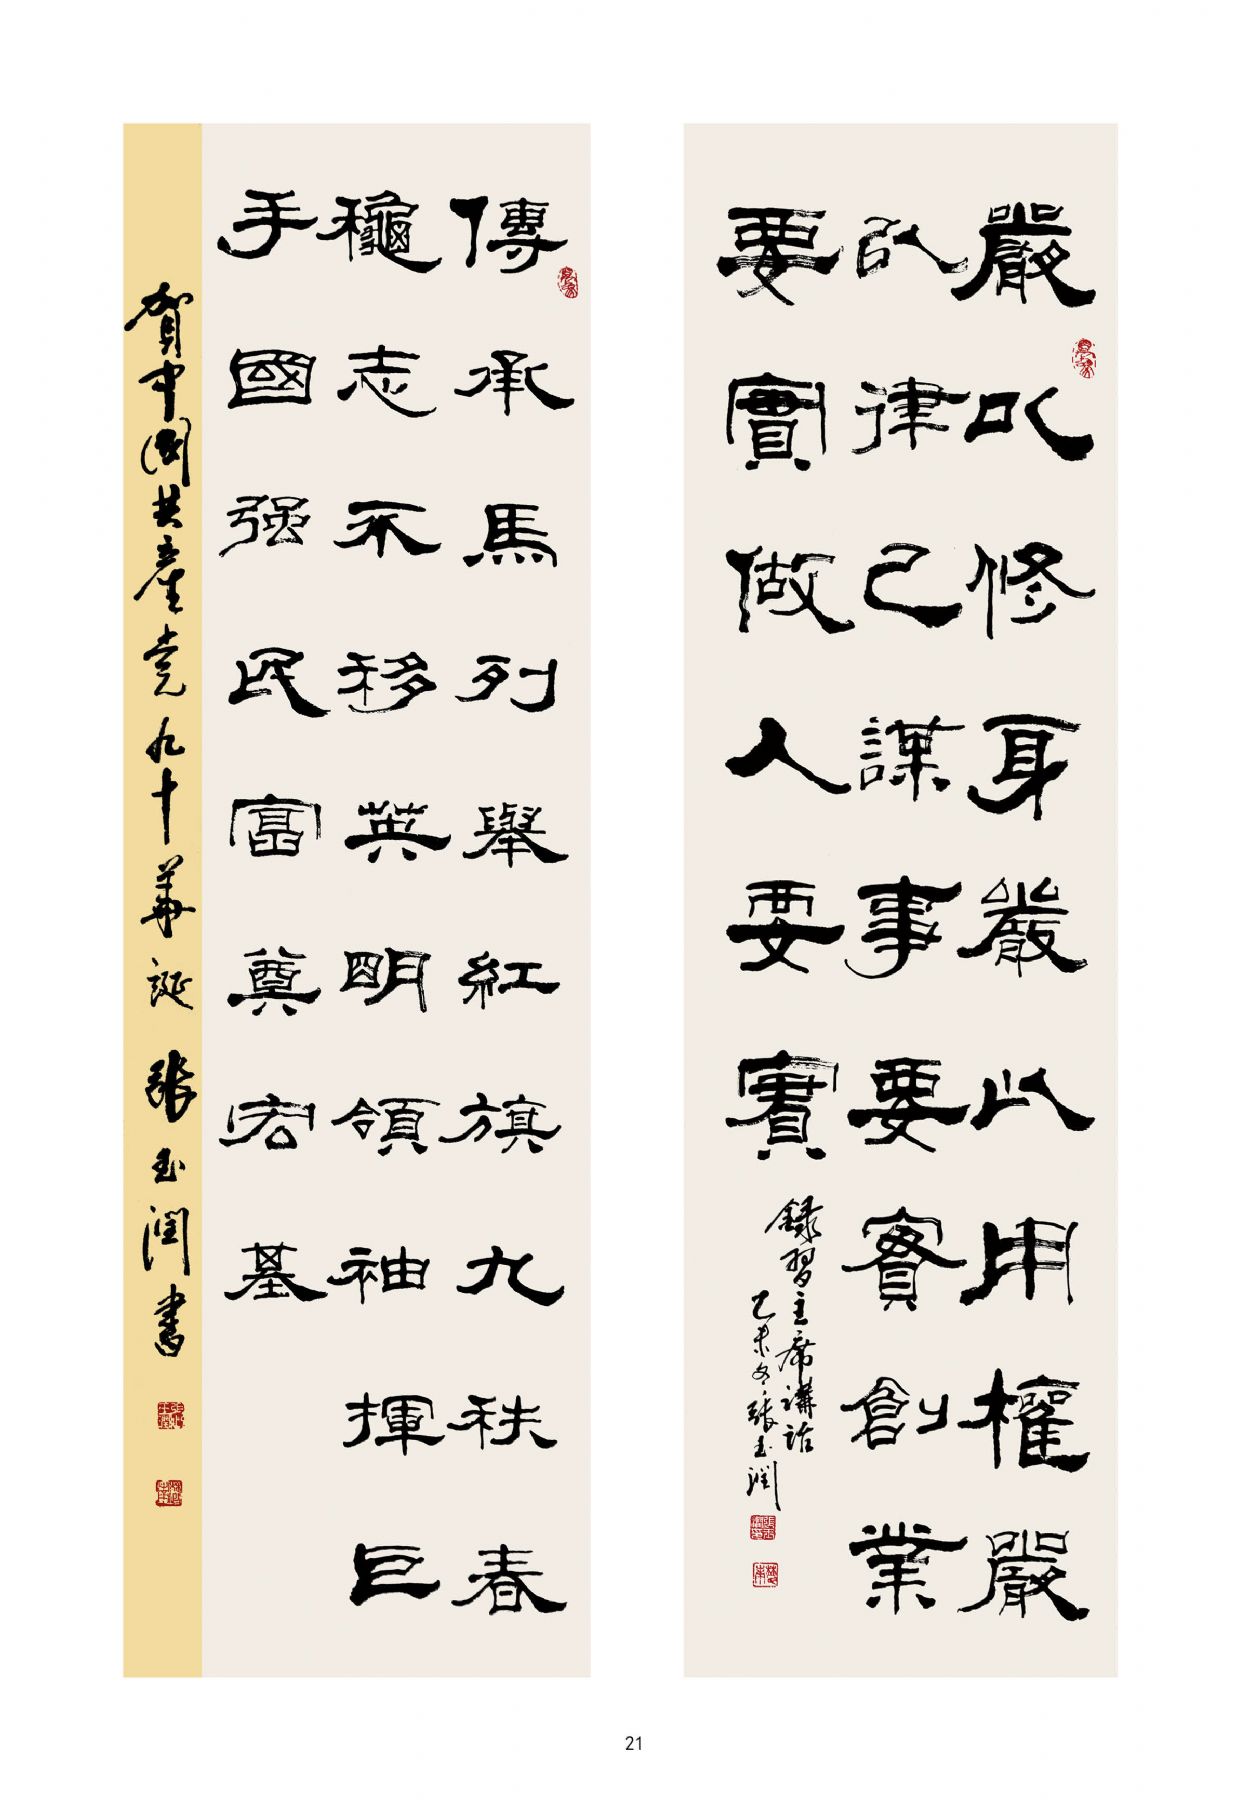 嚴以修身嚴以用權嚴
以律己謀事要實創業
要實做人要實
錄習主席講話
乙未冬張玉潤
傳承馬列舉紅旗九秩春
龝志不移英明領袖揮巨
手國强民富奠宏基
賀中國共產党九十華誕 張玉潤書
21